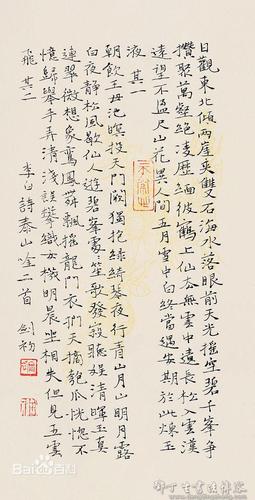 日觀東北傾兩崖夾雙石海水落眼前天光搖空碧千峯爭
攢聚萬壑絕凌歷緬彼鶴上仙去無雲中跡長松入雲漢
遠望不盈尺山花異人間五月雪中白終當遇安期於此煉玉
液 其一
朝飲王母池暝投天門闕獨抱綠綺琴夜行青山月山明月露
白夜靜松風歇仙人遊碧峯處處笙歌發寂聽娛清暉玉真
連翠微想象鸞鳳舞飄搖龍門衣捫天摘匏瓜恍惚不
憶歸舉手弄清淺誤攀織女機明晨坐相失但見五雲
飛其二 李白詩泰山吟二首
Bai百科